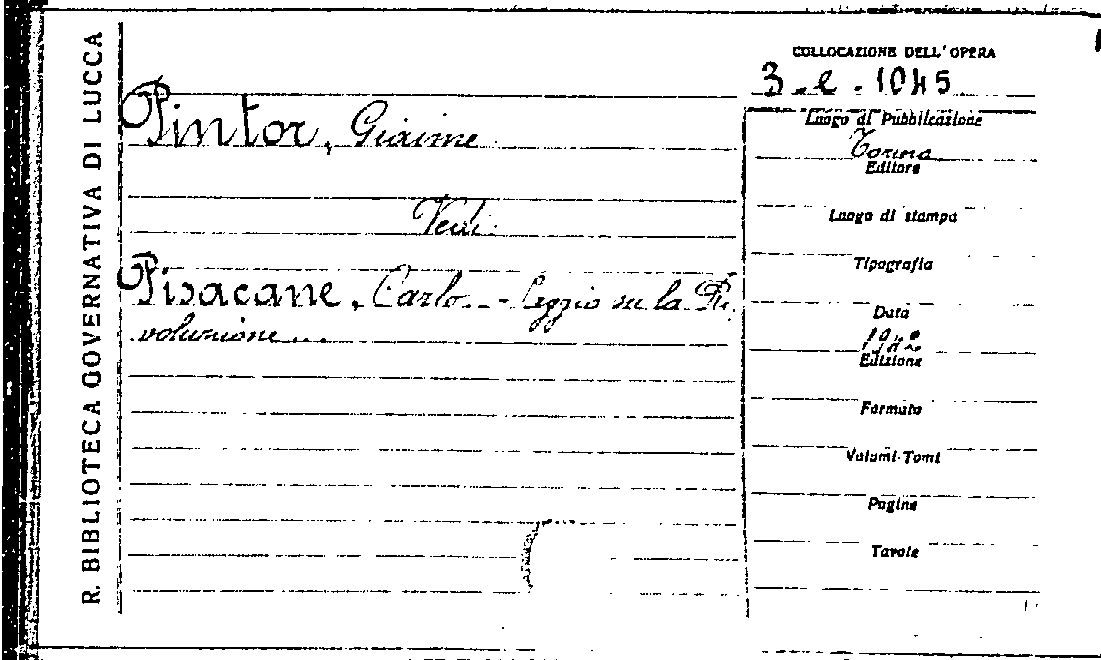 R. BIBLIOTECA GOVERNATIVA DI LUCCA
Pintor, Giaime
Vedi:
Pisacane, Carlo. - Saggio su la Ri-
voluzione...
COLLOCAZIONE DELL'OPERA
3. e. 1045
Luogo di Pubblicazione
Torino
Editore
Luogo di stampa
Tipografia
Data
Edizione
Formato
Volumi-Tomi
Pagine
Tavole